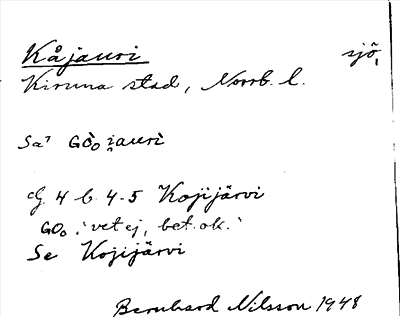 Kåjauri sjö
Kiruna stad, Norrb. l.
Sa⁷ GO̊o i̯auri
4 b 4-5 Kojijärvi
GOo 'vet ej, bet. ok.'
Se Kojijärvi
Bernhard Nilsson 1948